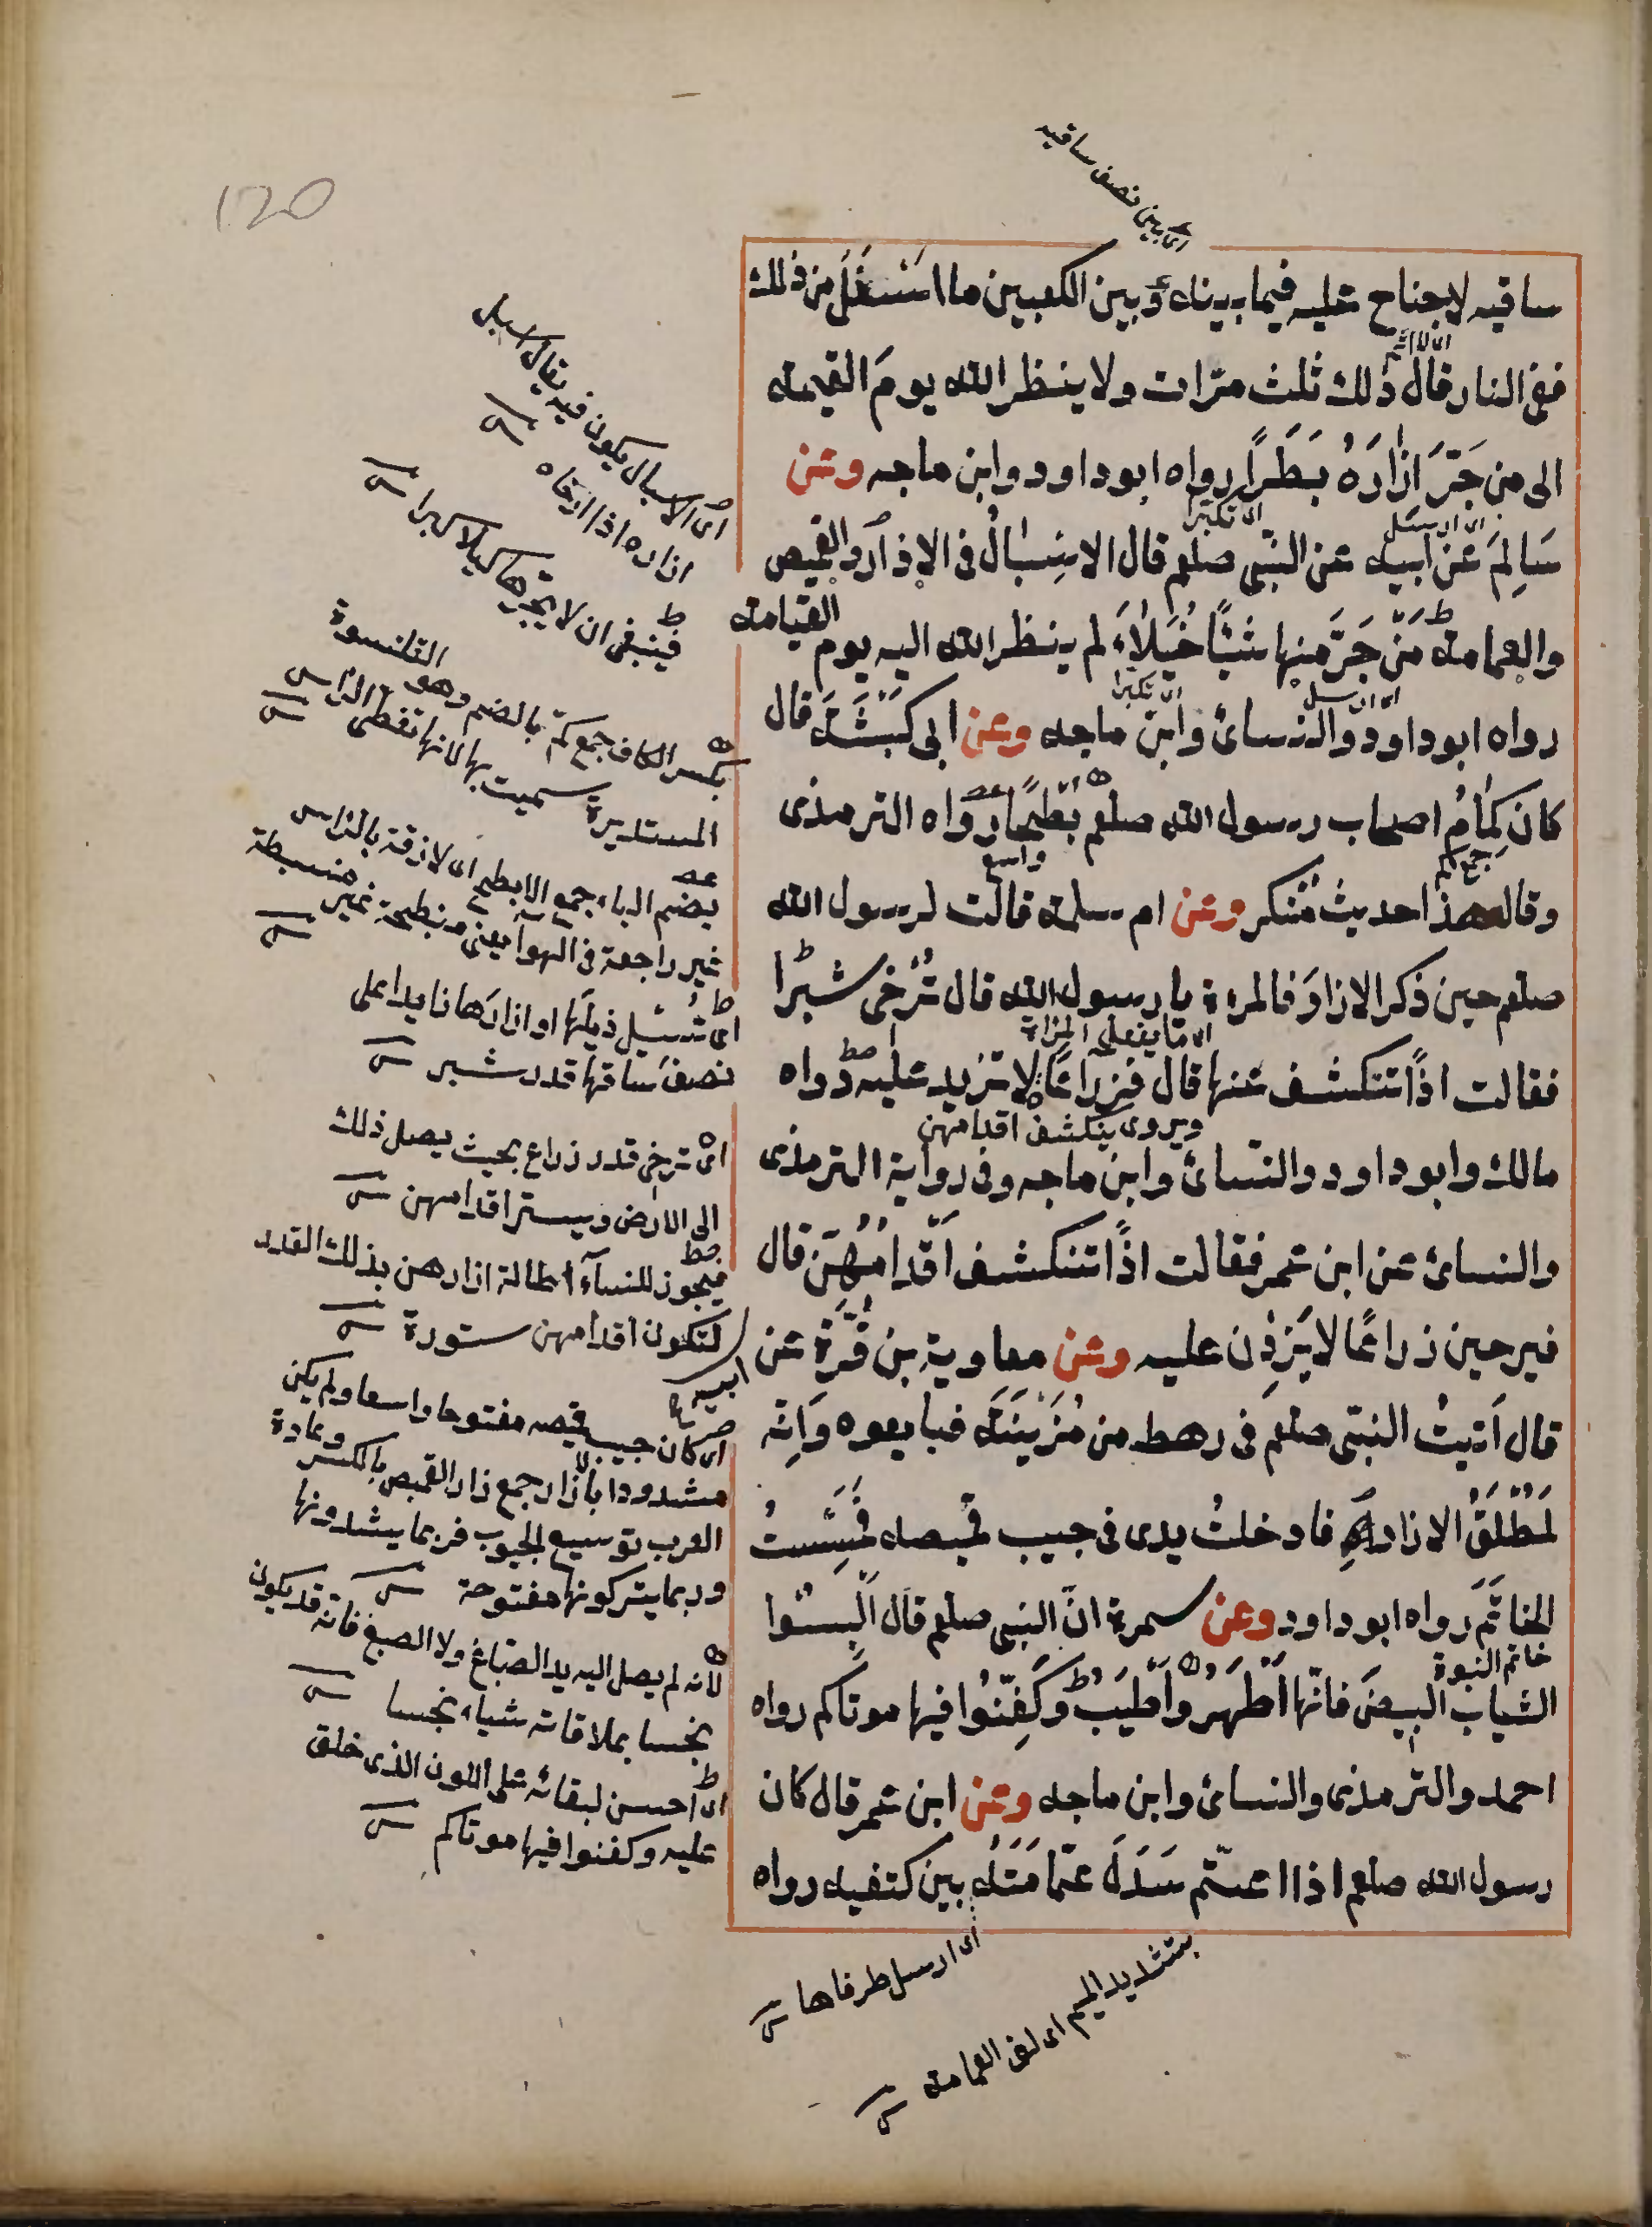 120
اى بين نصف ساقيه
ساقيه لا جناح عليه فيما بينه وبين الكعبين ما اسفل من ذلك
ففى النار قال ذلك ثلث مرّات ولا ينظر الله يومَ القيمة
الى من جَرَّ ازارَهُ بَطَرًا رواه ابو داود وابن ماجه وعن
اى تكبرا
سَالِمَ عَن ابيه عن النّبى صلعم قال الاسْبَالُ فى الازار والقميص
والعمامة مَنّ جَرَّ منها شَيْأً خُيَلاءَ لم ينظر الله اليه يوم القيامة
اى تكبرا
رواه ابو داود والنسائ وابن ماجه وعن ابى كَبْشَةَ قال
كانَ كِمَامُ اصحاب رسول الله صلعم بُطْحًا رواه الترمذى
جمع كم
واسع
وقال هذا حديث مُنْكر وعن ام سلمة قالت لرسول الله
صلعم حين ذكر الازار فالمرءة يا رسول الله قال تُرْخى شبرًا
اى ما يفعل المرأة
فقالت اذًا تنكشف عنها قال فزراعًا لا تزيد عليه رواه
ويروى ينكشف اقدامهن
مالك وابو داود والنّسائ وابن ماجه وفى رواية الترمذى
والنسائ عن ابن عمر فقالت اذًا تنكشف اَقْدامُهُنّ قال
فيرحين ذراعًا لا يَزِدْن عليه وعن معاوية بن قُرَّة عن ابيه
قال اَتيتُ النبّى صلعم فى رهط من مُزَيْنَةَ فبايعوه وَاِنّه
لَمُطْلَقُ الازار فادخلتُ يدى فى جيب قميصه فَمَسِسْتُ
الخاتَمَ رواه ابو داود وعن سمرة انّ النبى صلعم قال اَلْبسُوا
خاتم النبوة
الثياب اَلبيضَ فانّها اَطْهَرُ وَاَطْيَبُ وَكَفِّنُوا فيها موتاكم رواه
احمد والترمذى والنسائ وابن ماجه وعن ابن عمر قال كان
رسول الله صلعم اذا اعتّم سَدَلَ عمَامَتَهُ بين كتفيه رواه
اى ارسل طرفاها
بتشديد الميم اى لف العمامة
اى الاسبال يكون فيه يقال اسبل
ازاره اذا ارخاه
فينبغى ان لا يجرها كيلا كبرا
بكسر الكاف جمع كمّ بالضم وهو القلنسوة
المستديرة سميت بها لانها تغطى الرأس
بضم الباء جمع الابطح اى لازقة بالراس
غير راجعة فى الهوآ يعنى منبطحة غير منبسطة
اى تسبل ذيلَها او ازارَها نا يدا على
نصف ساقها قدر شبر
اى ترخى قدر ذراع بحيث يصل ذلك
الى الارض ويستر اقدامهن
فيجوز للنسآء اطالة ازارهن بذلك القدر
لتكون اقدامهن ستورة
اى كان جيب قيصه مفتوحا واسعا ولم يكن
مشدودا بالازار جمع زار القميص بالكسر وعادة
العرب توسيع الجيوب فربما يشدونها
وربما يتركونها مفتوحة
لأنه لم يصل اليه يد الصباغ ولا الصبغ فانه قد يكون
نجسا بملاقاته شياء نجسا
اى احسن لبقائه على اللون الذى خلق
عليه وكفنوا فيها موتاكم